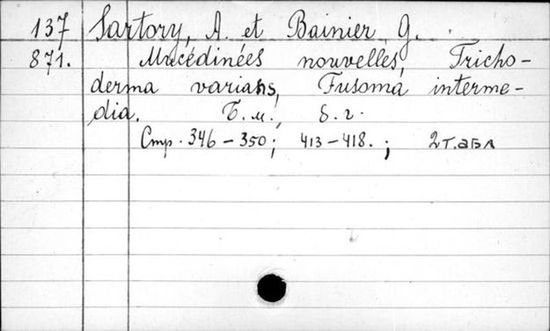 137 Sartory, A. et Bainier, G.
871. Mucédinées nouvelles, Tricho-
derma varians, Fusoma interme-
dia. Б. м., б. г.
Стр. 346-350; 413-418.; 2 табл